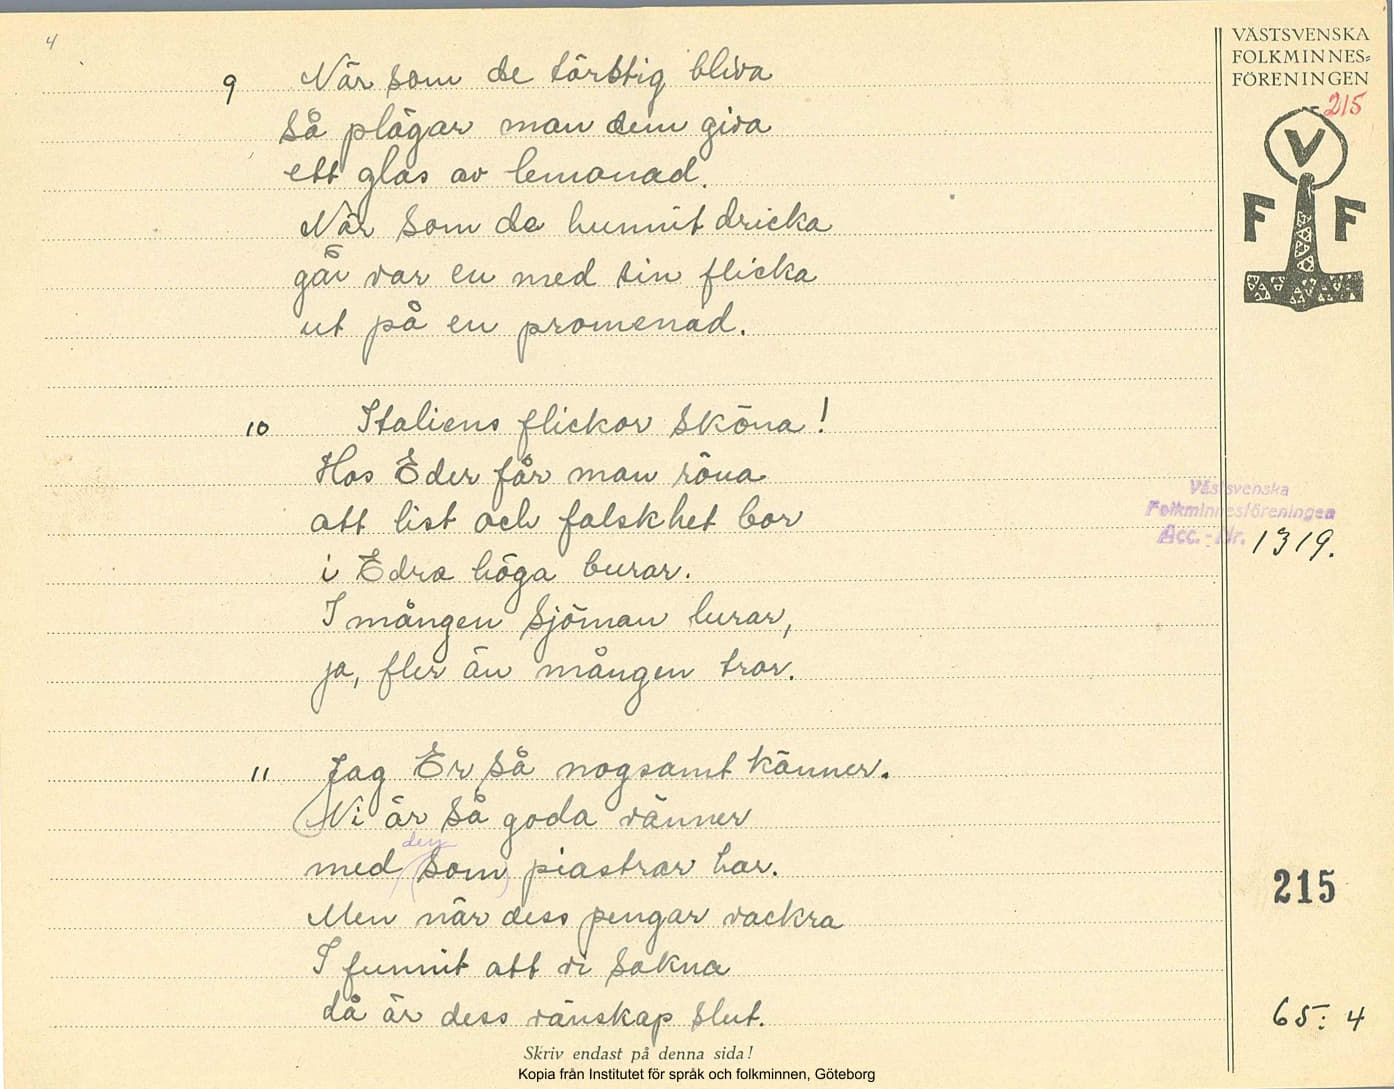 4
VÄSTSVENSKA
FOLKMINNES-
FÖRENINGEN
215
V
F F
9 När som de törstig bliva
så plägar man dem giva
ett glas av lemonad.
När som de hunnit dricka
går var en med sin flicka
ut på en promenad.
10 Italiens flickor sköna!
Hos Eder får man röna
att list och falskhet bor
i Edra höga burar.
I mången sjöman lurar,
ja, fler än mången tror.
Västsvenska
Folkminnesföreningen
Acc.-Nr. 1319.
11 Jag Er så nogsamt känner.
Ni är så goda vänner
den
med (som) piastrar har.
Men när dess pengar vackra
I funnit att vi sakna
då är dess vänskap slut.
215
65:4
Skriv endast på denna sida!
Kopia från Institutet för språk och folkminnen, Göteborg